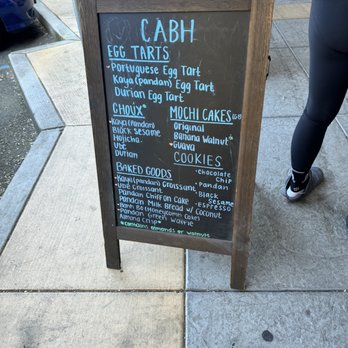 CABH
EGG TARTS
Portuguese Egg Tart
Kaya (pandan) Egg Tart
Durian Egg Tart
CHOUX*
Kaya (Pandan)
Black Sesame
Hojicha
Ube
Durian
MOCHI CAKES
Original
Banana Walnut*
Guava
COOKIES
chocolate Chip
Pandan
Black Sesame
Espresso
BAKED GOODS
Kaya (pandan) Croissant
Ube Croissant
Pandan Chiffon Cake
Pandan Milk Bread w/ Coconut
Honeycomb Cakes
Pandan Green Waffle
Almond Crisp*
*contains almonds or walnuts